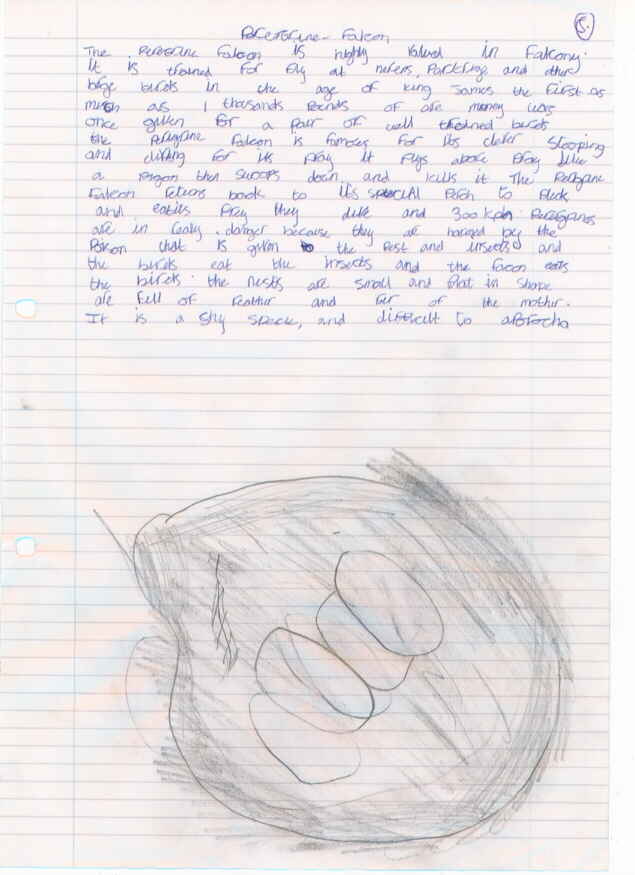 5.
Peregrine - Falcon
The Peregrine Falcon is highly valued in Falconry.
It is trained for fly at herens, Partrige and other
large birds in the age of King James the First as
much as 1 thousands Pounds of are money was
once given for a pair of well trained birds
the Peregrine Falcon is famous for its clefer Stooping
and diving for its pray it flys above Pray like
a pegon then swoops down and kills it The Peregrine
Falcon retions back to its special Perch to Pluck
and eat its Prey they dive and 300 kph Peregrines
are in realy danger because they are harmed by the
Poison that is given to the Pest and insects and
the birds eat the insects and the falcon eats
the birds the nests are small and flat in shape
are full of feather and fer of the mother.
It is a shy speck, and difficult to